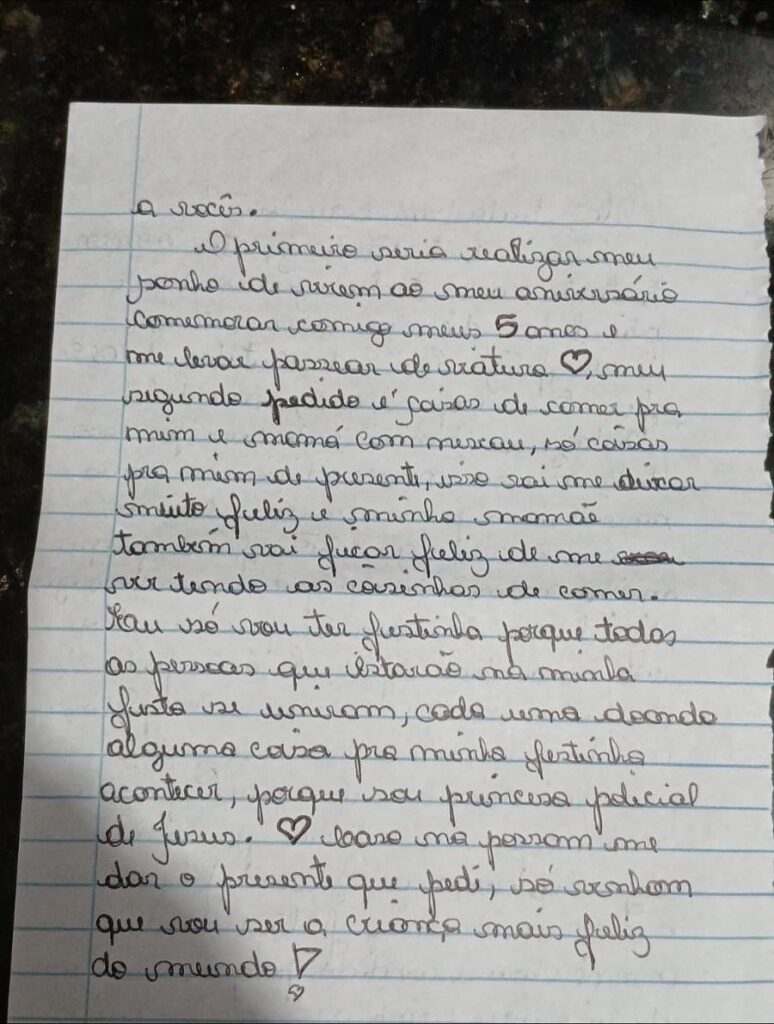 a vocês.
O primeiro seria realizar meu
sonho de virem ao meu aniversário
comemorar comigo meus 5 anos e
me levar passear de viatura ♡, meu
segundo pedido é coisas de comer pra
mim e mamã com nescau, só coisas
pra mim de presente, isso vai me deixar
muito feliz e minha mamãe
também vai ficar feliz de me
ver tendo as coisinhas de comer.
Eeu só vou ter festinha porque todas
as pessoas que estarão na minha
festa se uniram, cada uma doando
alguma coisa pra minha festinha
acontecer, porque sou princesa policial
de Jesus. ♡ Caso na possam me
dar o presente que pedi, só venham
que vou ser a criança mais feliz
do mundo !